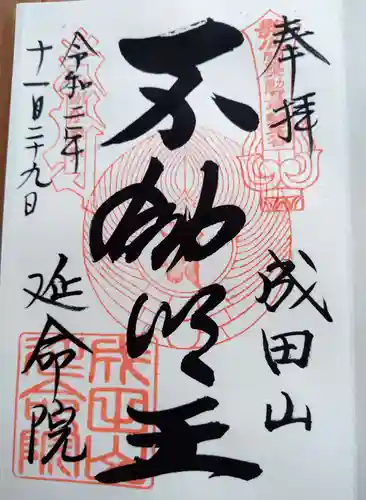 奉拝
成田山
不動明王
令和二年
十一月二十九日
延命院